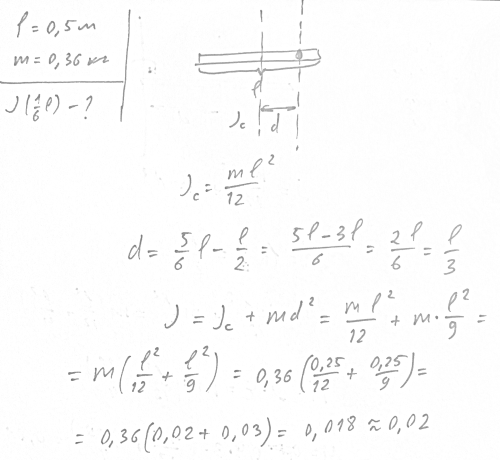 l = 0,5 м
m = 0,36 кг
J(1/6 l) - ?
l
Jc d
Jc = ml²/12
d = 5/6 l - l/2 = (5l - 3l)/6 = 2l/6 = l/3
J = Jc + md² = ml²/12 + m · l²/9 =
= m(l²/12 + l²/9) = 0,36(0,25/12 + 0,25/9) =
= 0,36(0,02 + 0,03) = 0,018 ≈ 0,02